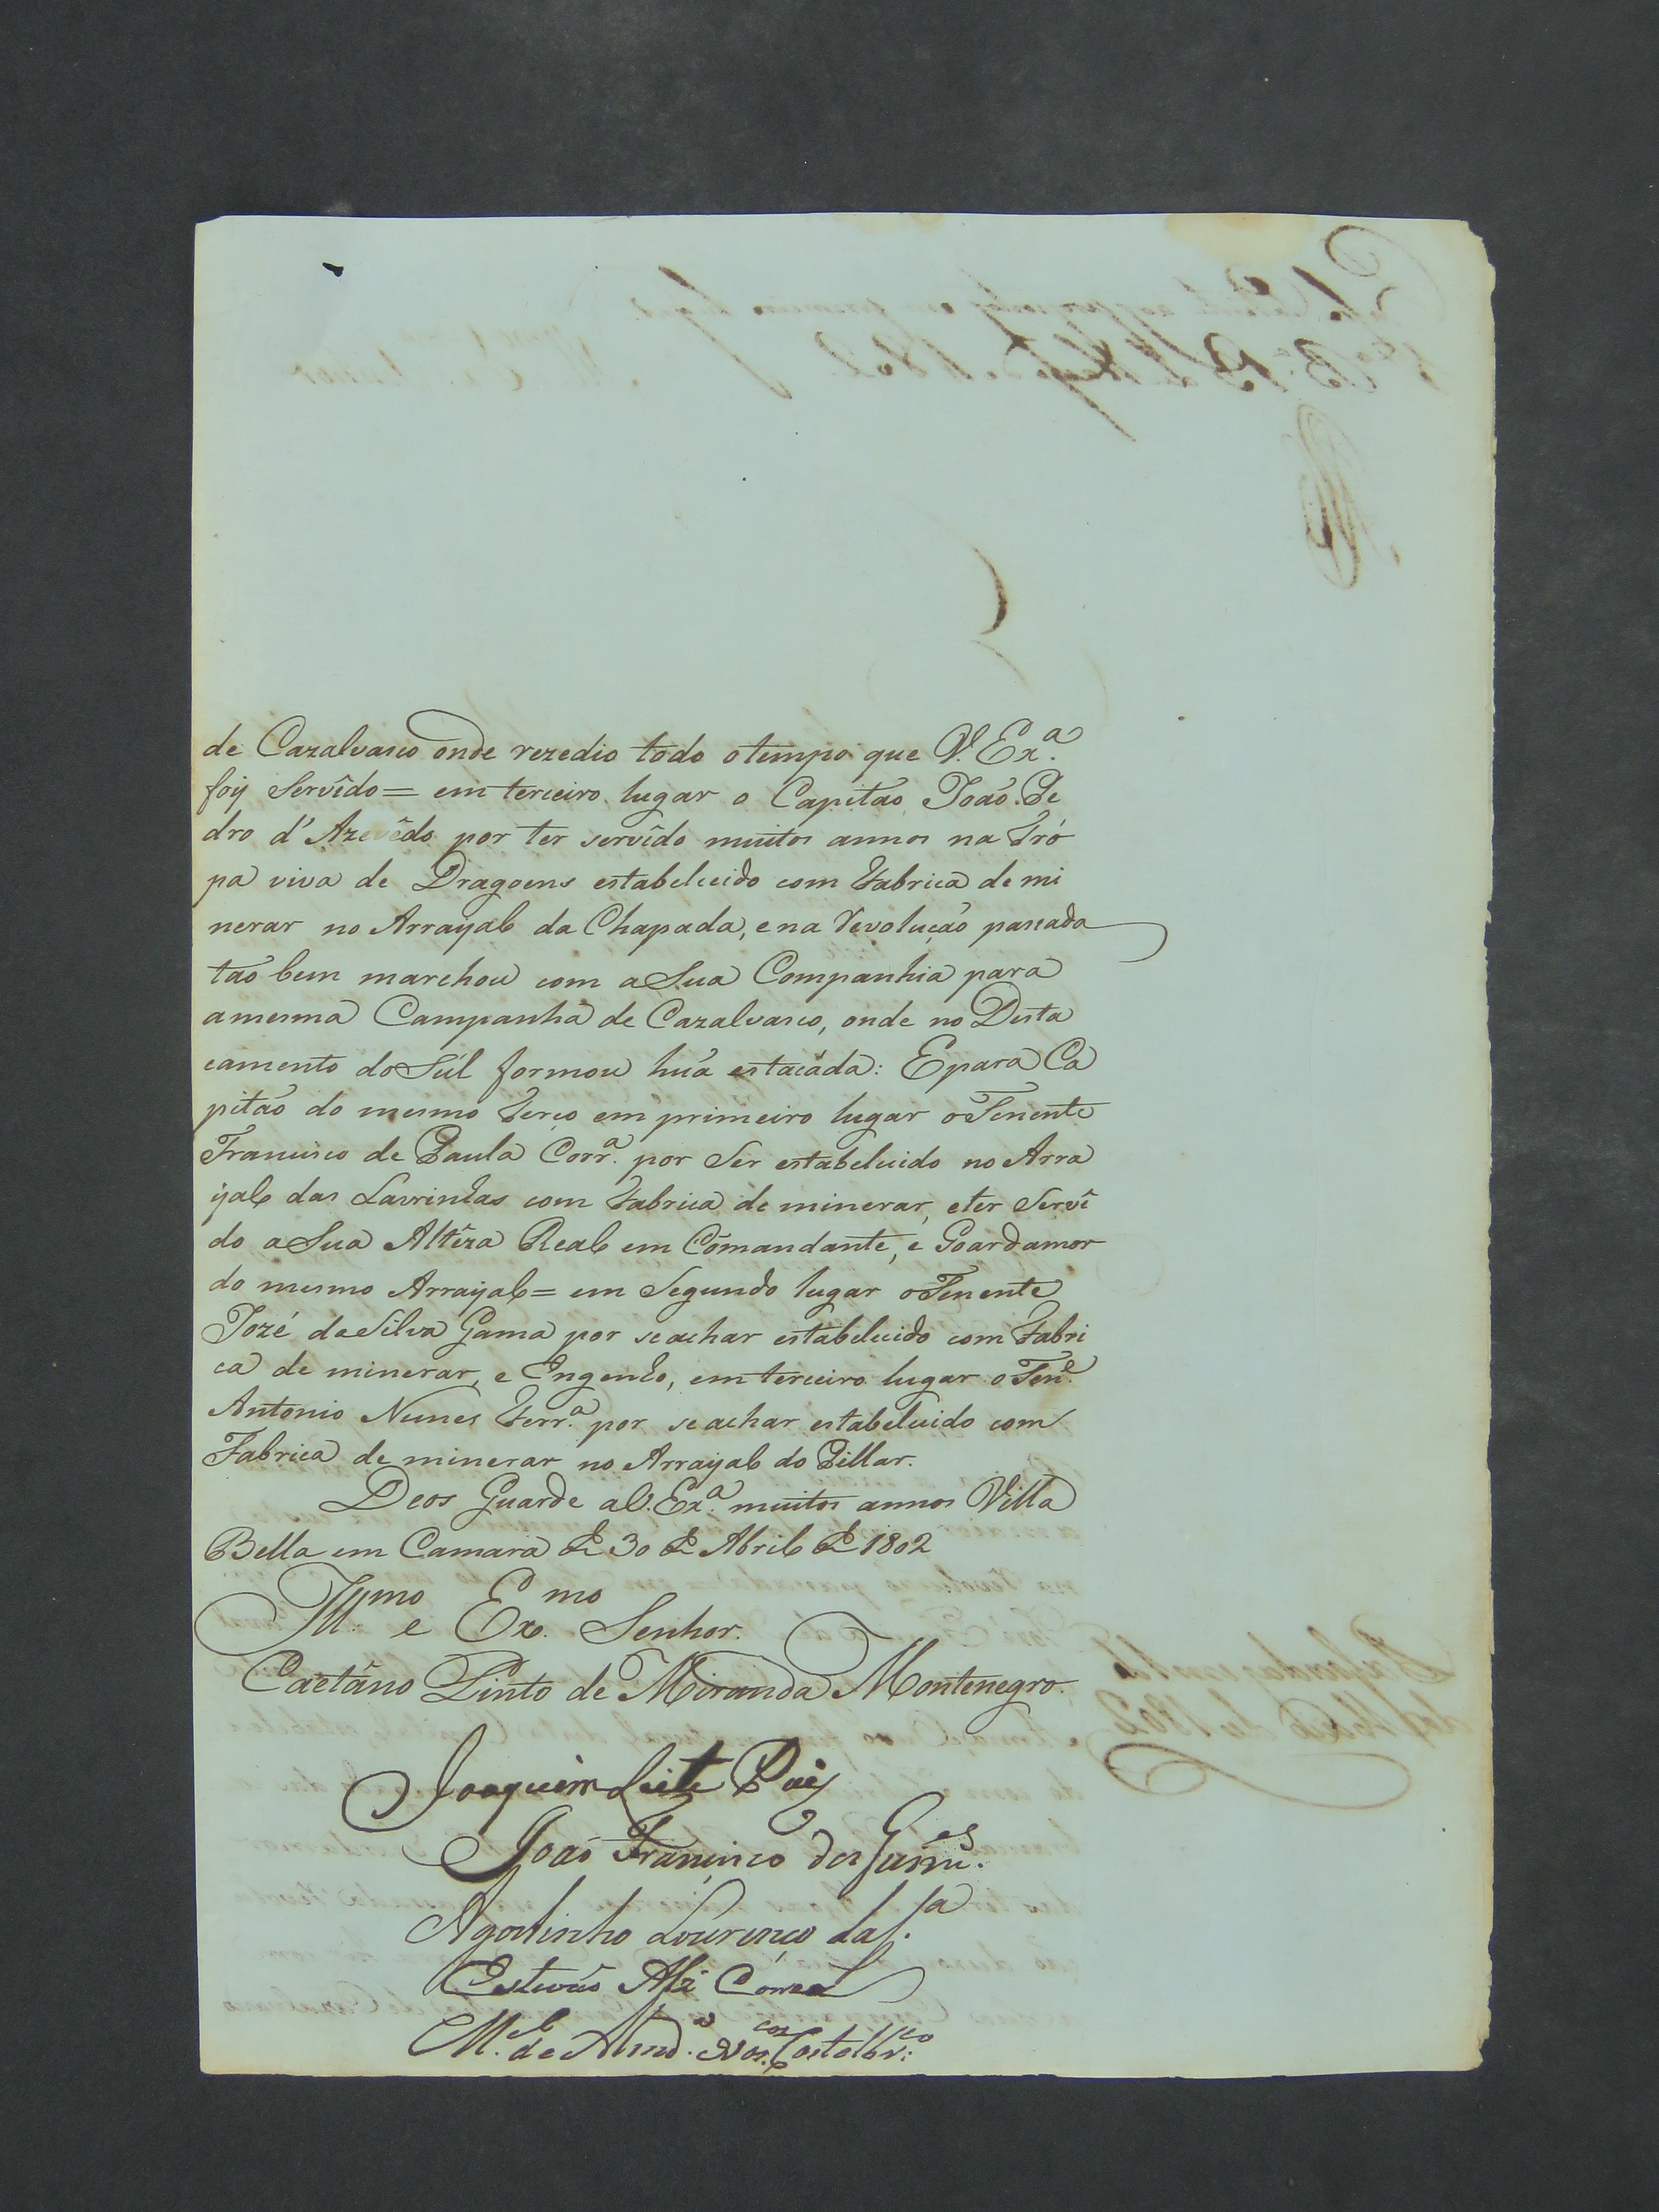 de Cazalvasco onde rezedio todo o tempo que V. Ex.ª
foy Servîdo = em terceiro lugar o Capitaõ Joaõ Pe
dro d'Azevêdo por ter servîdo muitos annos na Tró
pa viva de Dragoens estabelecido com Fabrica de mi
nerar no Arrayal da Chapada, e na revoluçaõ passada
taõ bem marchou com a Sua Companhia para
a mesma Campanha de Cazalvasco, onde no Desta
camento do Súl formou hũa estacáda: E para Ca
pitaõ do mesmo Terço em primeiro lugar o Tenente
Francisco de Paula Corr.ª por Ser estabelecido no Arra
yal das Lavrinhas com Fabrica de minerar, e ter Servî
do a Sua Altêza Real em Cõmandante, e Goardamor
do mesmo Arrayal = em Segundo lugar o Tenente
Jozé da Silva Gama por se achar estabelecido com Fabri
ca de minerar, e Engenho, em terceiro lugar o Ten.e
Antonio Nunes Ferr.ª por se achar estabelecido com
Fabrica de minerar no Arrayal do Pillar.
Deos Guarde a V. Ex.ª muitos annos Villa
Bella em Camara de 30 de Abril de 1802
Ill.mo e Ex.mo Senhor.
Caetâno Pinto de Miranda Montenegro.
Joaquim Leite Paes
Joaõ Francisco dos Guim.es
Agostinho Lourenço da S.ª
Estevaõ Correa
M.el de Almd.ª